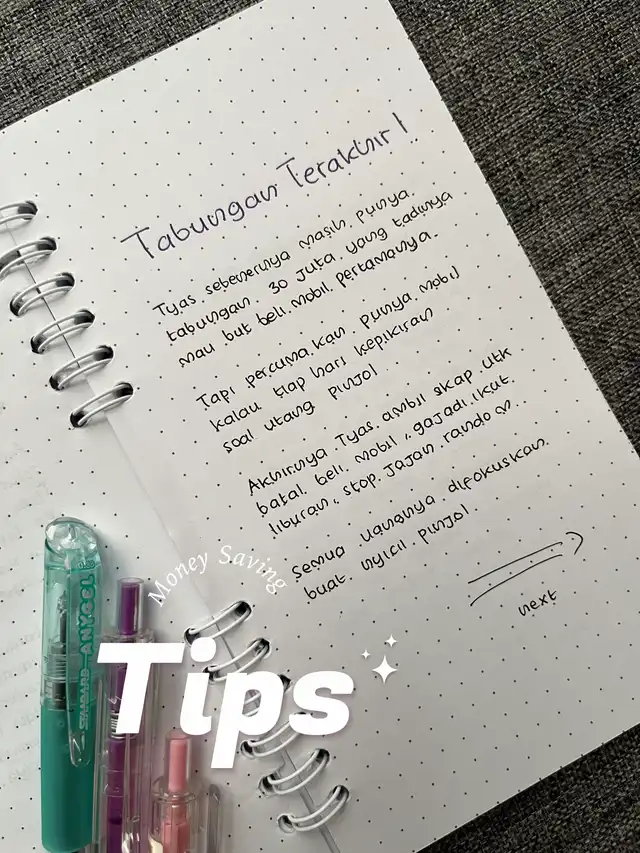 Tabungan Terakhir!
Tyas sebenernya masih punya
tabungan 30 juta yang tadinya
mau but beli mobil pertamanya.
Tapi percuma kan punya mobil
kalau tiap hari kepikiran
soal utang pinjol
Akhirnya Tyas ambil skap utk
batal beli mobil, gajadi ikut
liburan, stop jajan random..
Semua uangnya difokuskan
buat nyicil pinjol
next
Money Saving
Tips
STANDARD ANYCOL